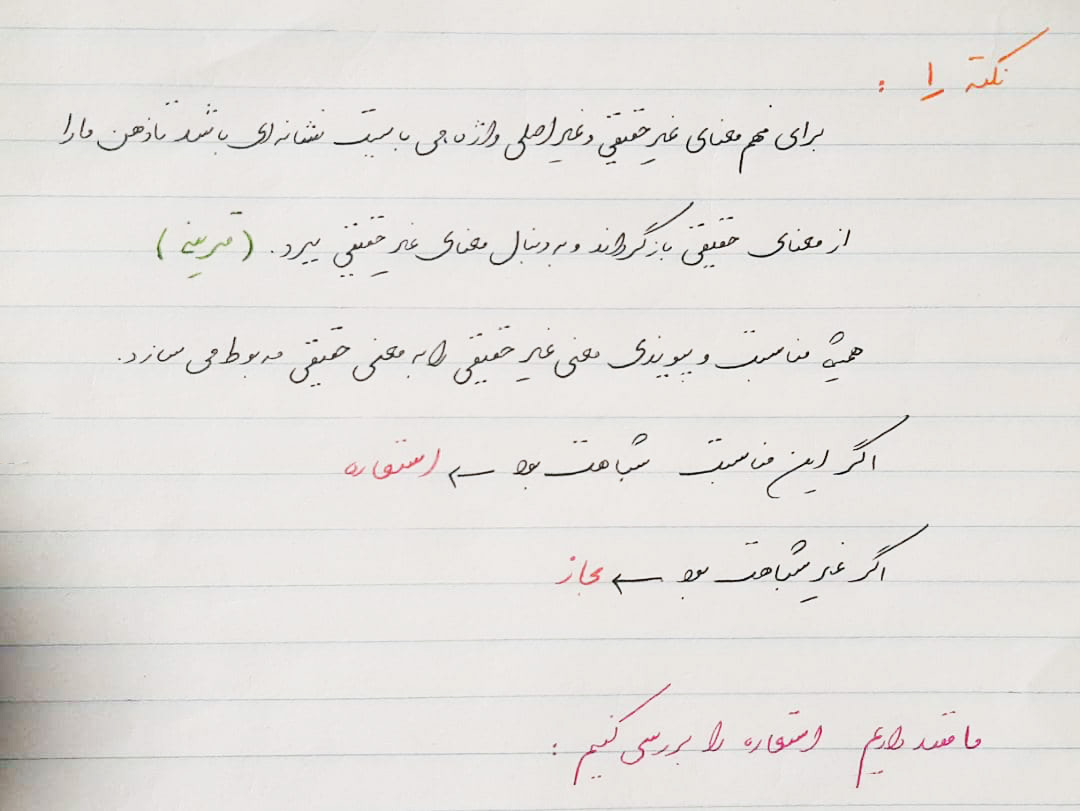 نکته ۱ :
برای فهم معنای غیر حقیقی و غیر اصلی واژه، می بایست نشانه ای باشد تا ذهن ما را
از معنای حقیقی بازگرداند و به دنبال معنای غیر حقیقی ببرد. (قرینه)
همیشه مناسبت و پیوندی معنی غیر حقیقی را به معنی حقیقی مربوط می سازد.
اگر این مناسبت شباهت بود ← استعاره
اگر غیر شباهت بود ← مجاز
ما قصد داریم استعاره را بررسی کنیم :